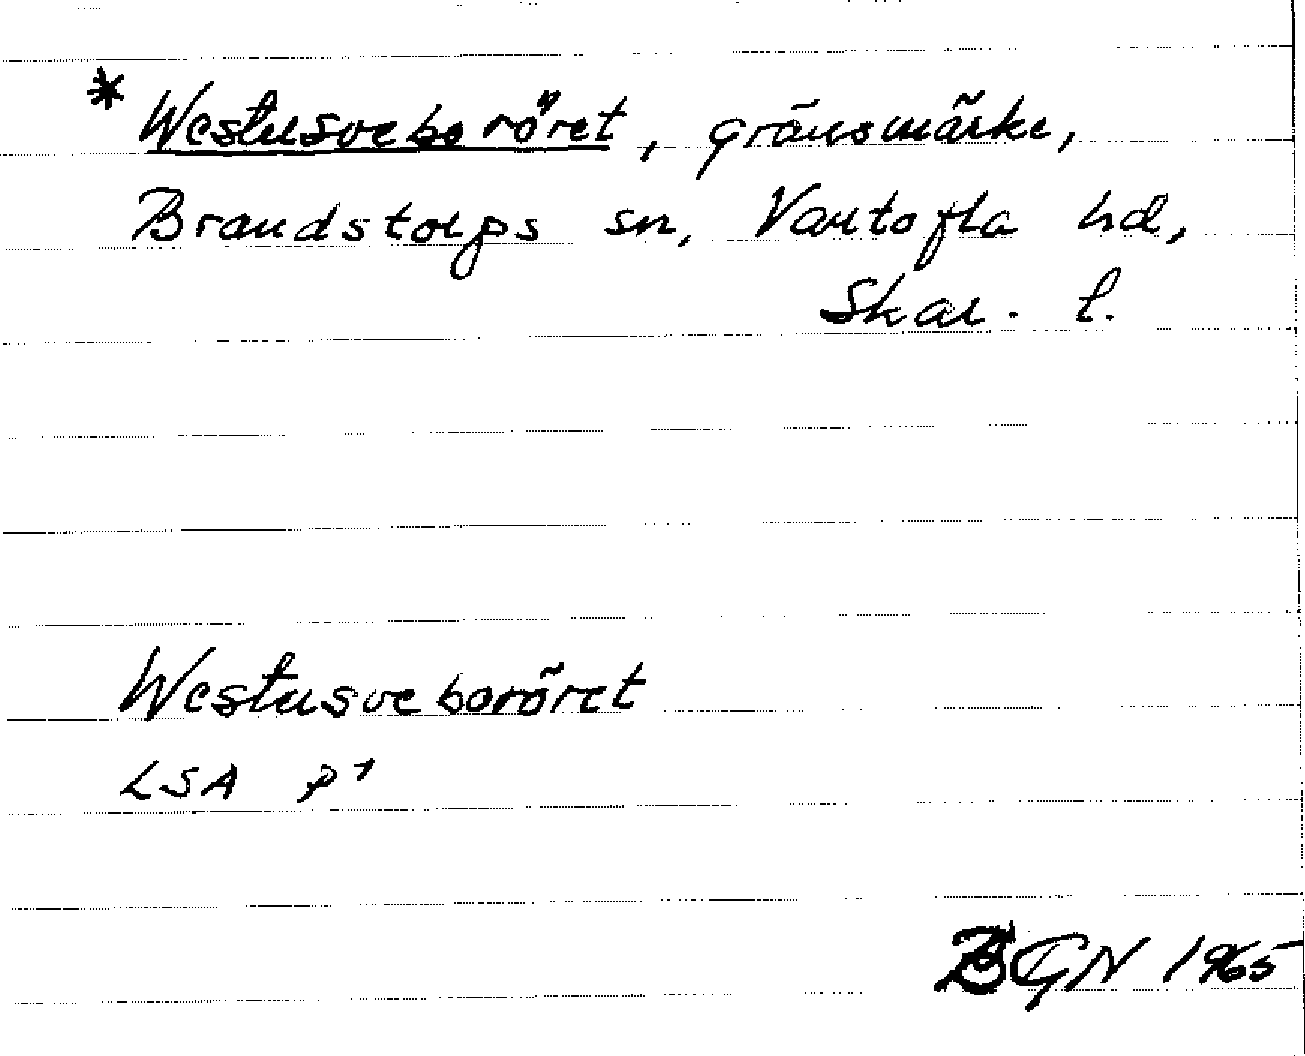 * Westusveboröret, gränsmärke,
Brandstorps sn, Vartofta hd,
Skar. l.
Westusveboröret
LSA p1
BGN 1965